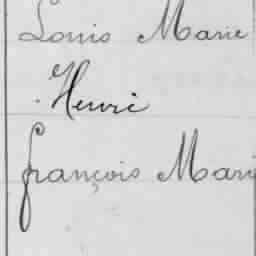 Louis Marie
Henri
François Marie